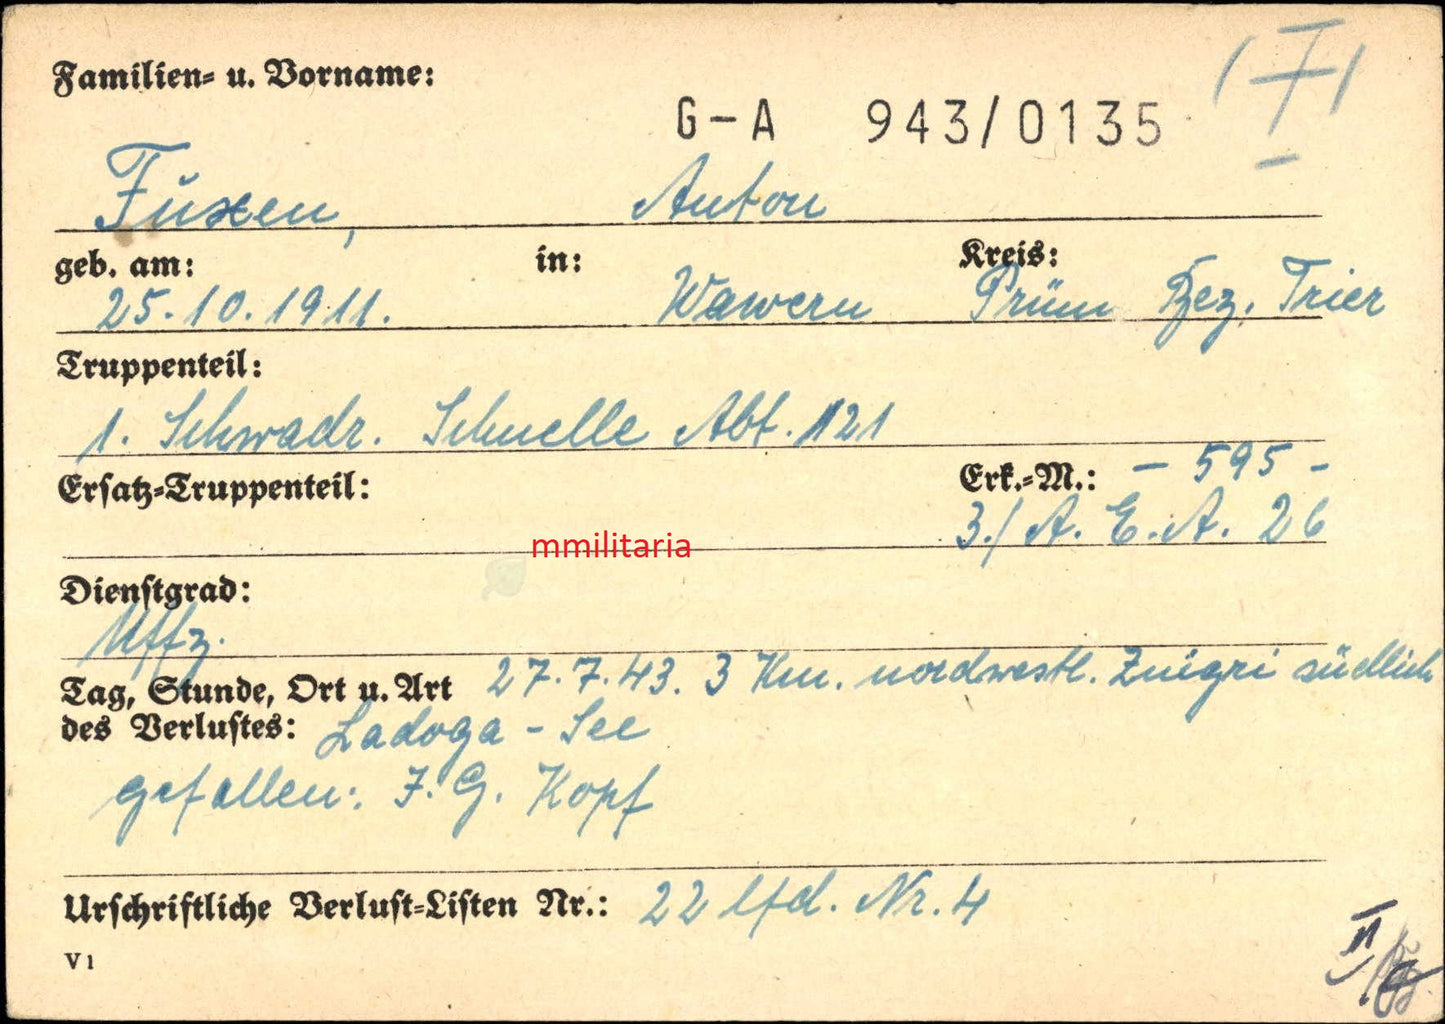 Familien- u. Vorname:
G-A 943/0135
Fuxen, Anton
geb. am: in: Kreis:
25.10.1911. Wawern Prüm Bez. Trier
Truppenteil:
1. Schwadr. Schnelle Abt. 121
Ersatz-Truppenteil: Erk.-M.: - 595 -
3./ A. E. A. 26
mmilitaria
Dienstgrad:
Uffz.
Tag, Stunde, Ort u. Art 27.7.43. 3 Km. nordwestl. Znigri südlich
des Verlustes: Ladoga - See
gefallen: I. G. Kopf
Urschriftliche Verlust-Listen Nr.: 22 lfd. Nr. 4
V 1
II